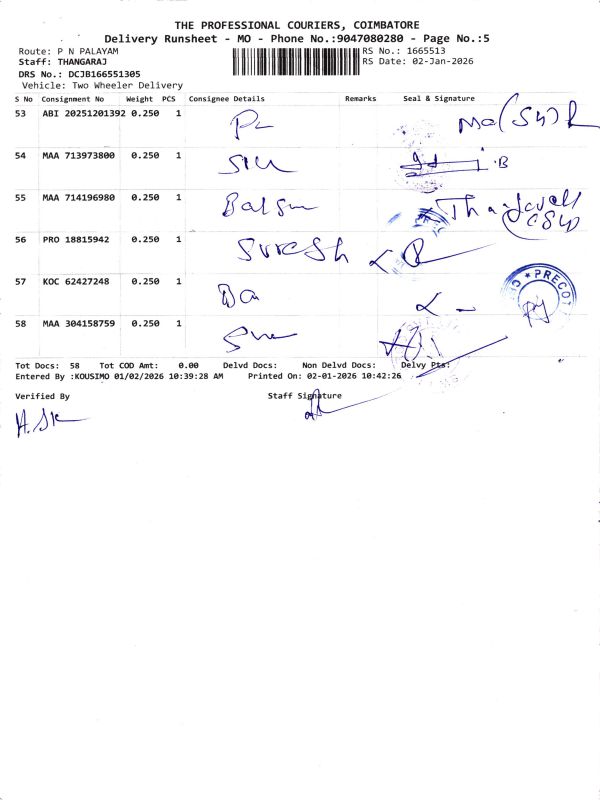 THE PROFESSIONAL COURIERS, COIMBATORE
Delivery Runsheet - MO - Phone No.:9047080280 - Page No.:5
Route: P N PALAYAM RS No.: 1665513
Staff: THANGARAJ RS Date: 02-Jan-2026
DRS No.: DCJB166551305
Vehicle: Two Wheeler Delivery
S No Consignment No Weight PCS Consignee Details Remarks Seal & Signature
53 ABI 20251201392 0.250 1
54 MAA 713973800 0.250 1
55 MAA 714196980 0.250 1
56 PRO 18815942 0.250 1 Suresh
57 KOC 62427248 0.250 1 PRECOT
58 MAA 304158759 0.250 1
Tot Docs: 58 Tot COD Amt: 0.00 Delvd Docs: Non Delvd Docs: Delvy Pts:
Entered By :KOUSIMO 01/02/2026 10:39:28 AM Printed On: 02-01-2026 10:42:26
Verified By Staff Signature